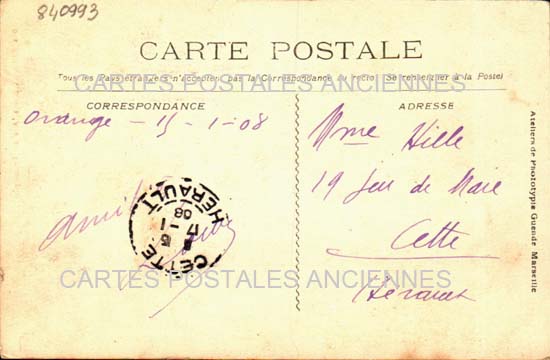 840993
CARTE POSTALE
Tous les Pays étrangers n'acceptent pas la Correspondance au recto (Se renseigner à la Poste)
CARTES POSTALES ANCIENNES
CORRESPONDANCE
ADRESSE
Orange - 15-1-08
Mme Hille
19 de Mare
Cette
Hérault
CETTE
17 - 1
08
HERAULT
CARTES POSTALES ANCIENNES
Ateliers de Phototypie Guende Marseille